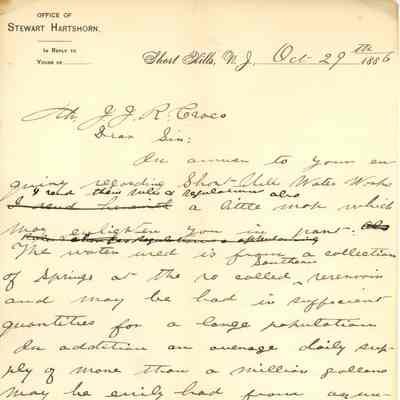 OFFICE OF
STEWART HARTSHORN.
IN REPLY TO
YOURS OF
Short Hills, N. J., Oct 29th 1886
Mr J. J. R. Croes
Dear Sir:
In answer to your en-
quiry regarding Short Hills Water Works
I send them rules & regulations also
I send herewith a little map which
may enlighten you in part. Also
The water used is from a collection
of Springs at the so called Southern reservoir
and may be had in sufficient
quantities for a large population
In addition an average daily sup-
ply of more than a million gallons
may be easily had from aque-